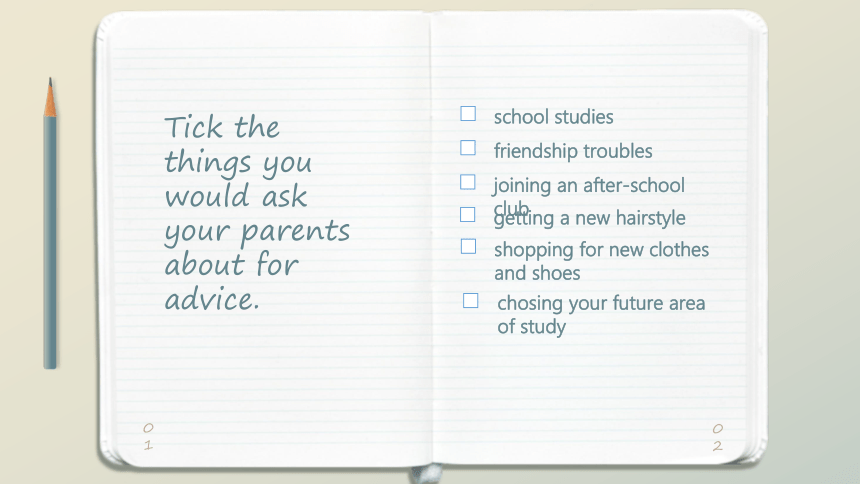 Tick the
things you
would ask
your parents
about for
advice.
school studies
friendship troubles
joining an after-school
club
getting a new hairstyle
shopping for new clothes
and shoes
chosing your future area
of study
0
1
0
2